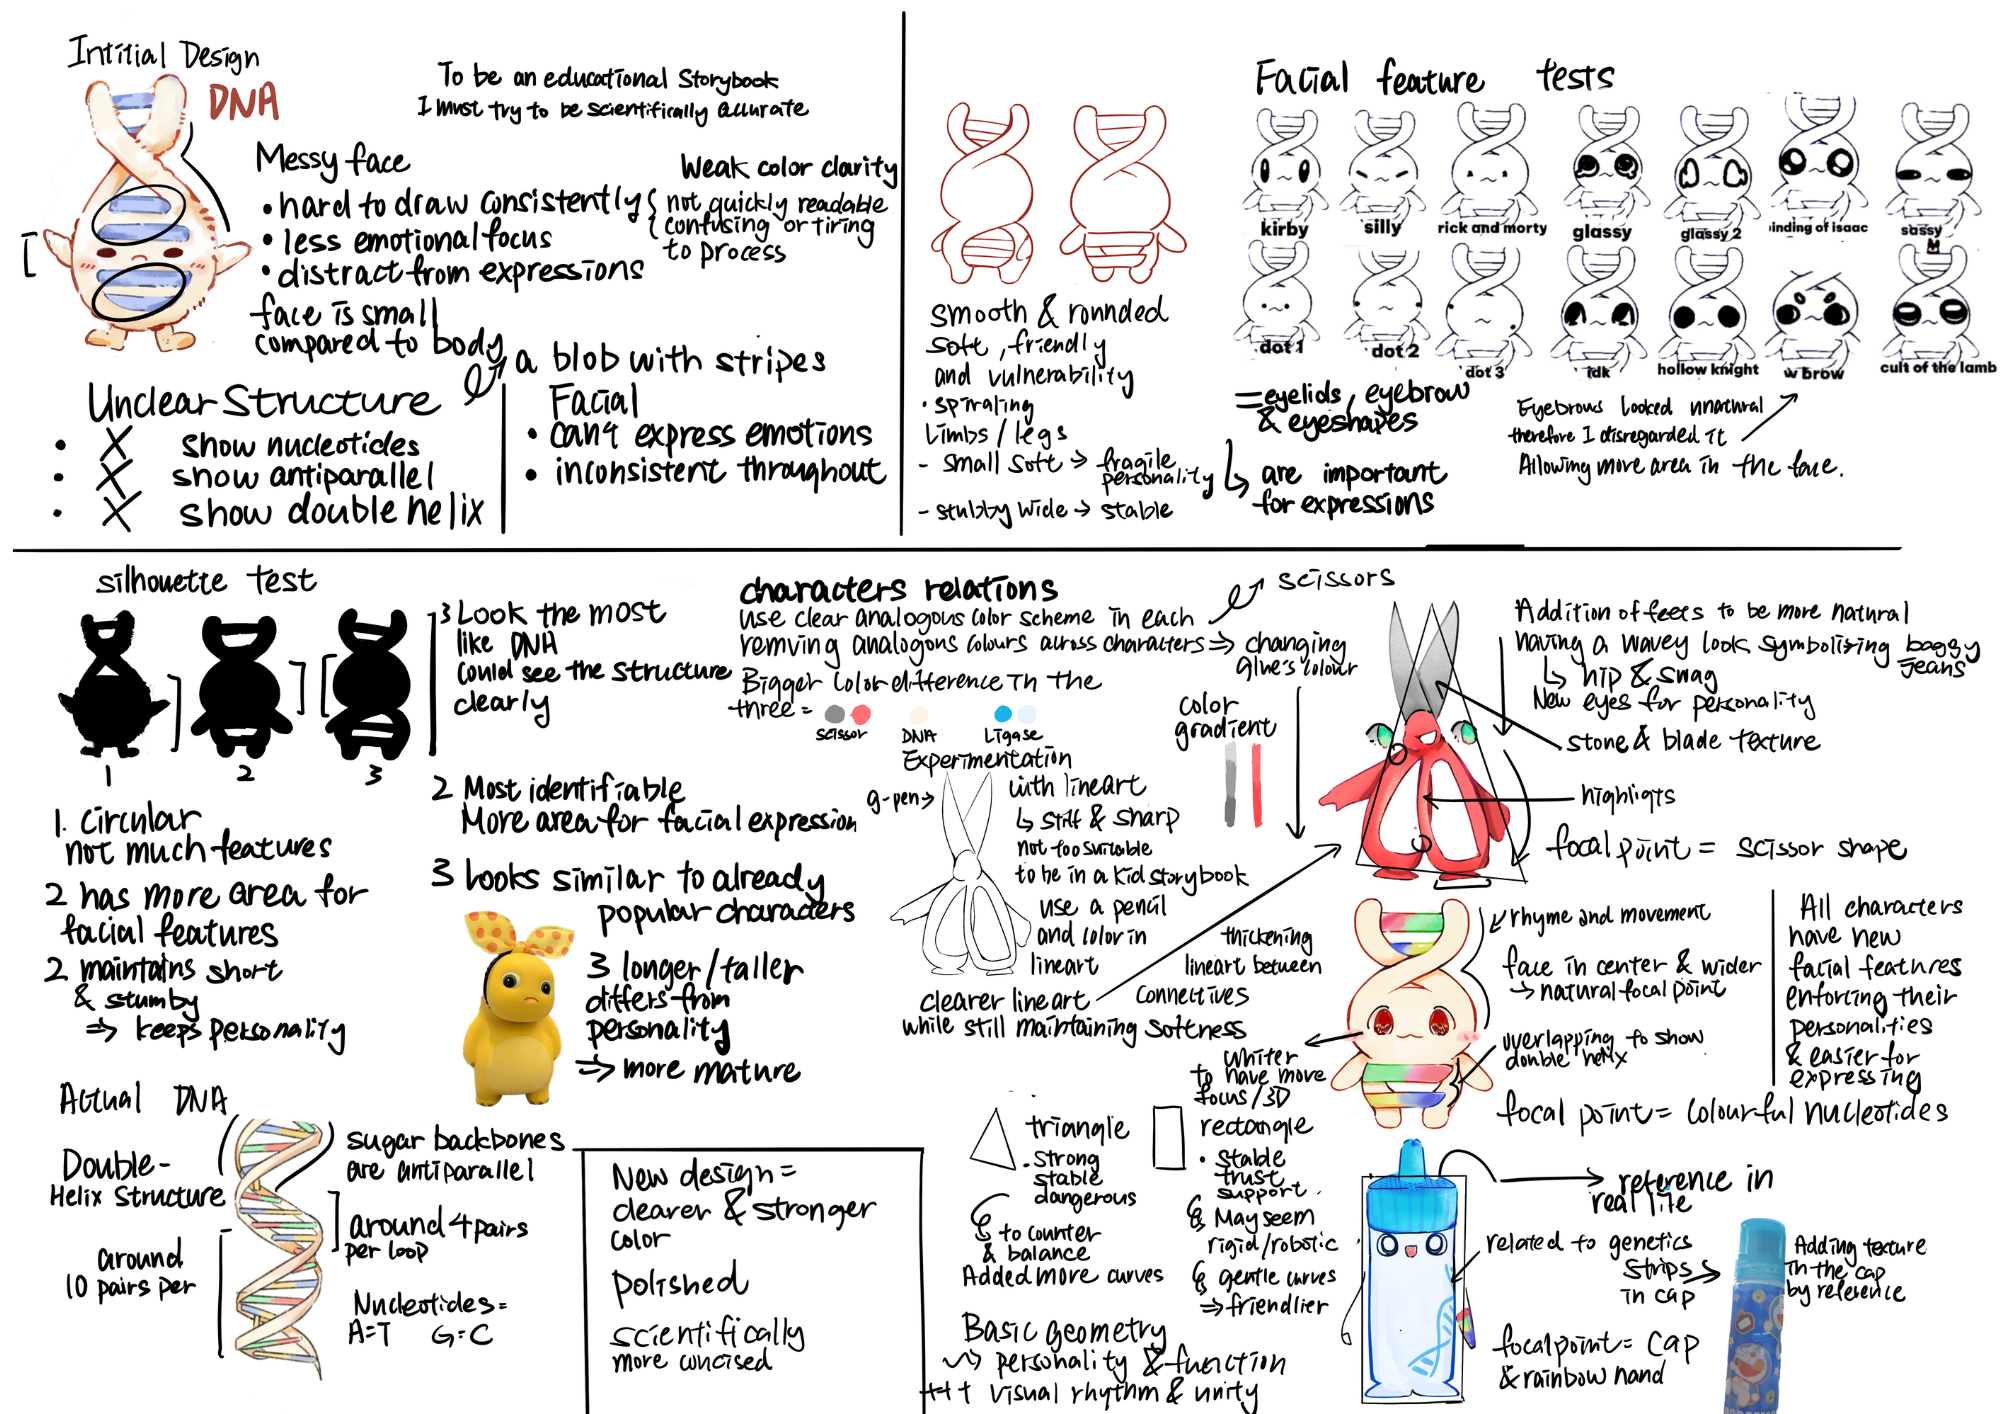 Intitial Design
DNA
To be an educational Storybook
I must try to be scientifically accurate
Messy face
• hard to draw consistently
• less emotional focus
• distract from expressions
face is small
compared to body
Weak color clarity
not quickly readable
confusing or tiring
to process
Unclear Structure
• X show nucleotides
• X show antiparallel
• X show double helix
a blob with stripes
Facial
• can't express emotions
• inconsistent throughout
smooth & rounded
soft, friendly
and vulnerability
• spiraling
limbs/legs
- small soft → fragile
personality
- stubby wide → stable
Facial feature tests
kirby
silly
rick and morty
glassy
glassy 2
inding of isaac
sassy
dot 1
dot 2
dot 3
idk
hollow knight
w brow
cult of the lamb
= eyelids, eyebrow
& eyeshapes
are important
for expressions
Eyebrows looked unnatural
therefore I disregarded it
Allowing more area in the face.
silhouette test
1
2
3
3 Look the most
like DNA
could see the structure
clearly
1. circular
not much features
2 has more area for
facial features
2 maintains short
& stumby
⇒ keeps personality
2 Most identifiable
More area for facial expression
3 looks similar to already
popular characters
3 longer/taller
differs from
personality
⇒ more mature
Actual DNA
Double-
Helix Structure
around
10 pairs per
sugar backbones
are antiparallel
around 4 pairs
per loop
Nucleotides =
A=T G=C
New design =
clearer & stronger
color
polished
scientifically
more concised
characters relations
use clear analogous color scheme in each
remving analogous colours across characters ⇒ changing
glue's colour
scissors
Bigger color difference in the
three =
scissor
DNA
Ligase
color
gradient
Experimentation
g-pen →
with lineart
↳ stiff & sharp
not too suitable
to be in a kid storybook
use a pencil
and color in
lineart
clearer lineart
while still maintaining softness
thickening
lineart between
connectives
whiter
to have more
focus/3D
triangle
• strong
stable
dangerous
to counter
& balance
Added more curves
rectangle
• stable
trust
support.
May seem
rigid/robotic
gentle curves
⇒ friendlier
Basic geometry
personality & function
+++ visual rhythm & unity
Addition of feets to be more natural
having a wavey look symbolizing baggy
jeans
↳ hip & swag
New eyes for personality
stone & blade texture
highligts
focal point = scissor shape
rhyme and movement
face in center & wider
→ natural focal point
overlapping to show
double helix
focal point = colourful nucleotides
All characters
have new
facial features
enforcing their
personalities
& easier for
expressing
reference in
real life
related to genetics
strips
in cap
Adding texture
in the cap
by reference
focal point = cap
& rainbow hand